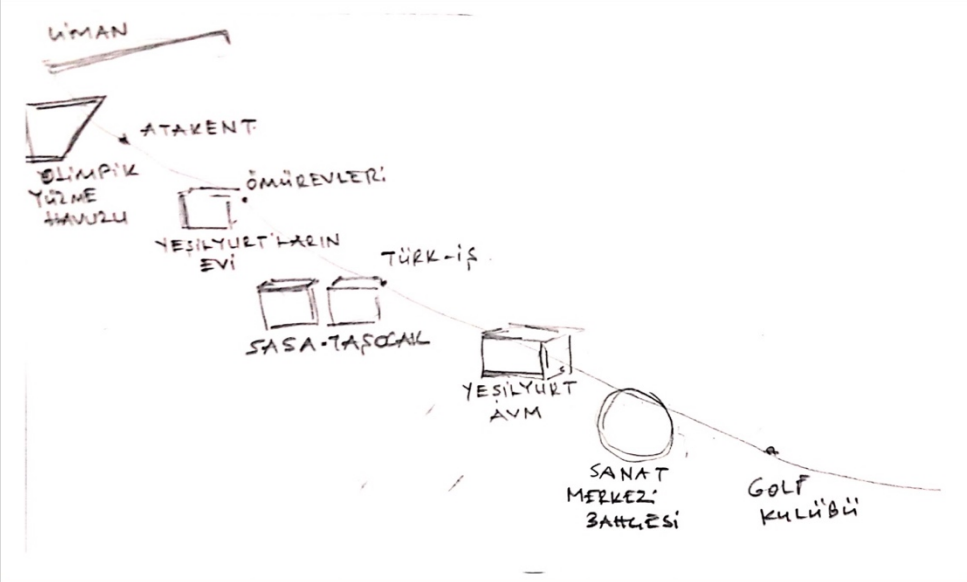 LİMAN
ATAKENT
OLİMPİK
YÜZME
HAVUZU
ÖMÜREVLERİ
YEŞİLYURT'LARIN
EVİ
TÜRK-İŞ
SASA-TAŞOCAK
YEŞİLYURT
AVM
SANAT
MERKEZİ
BAHÇESİ
GOLF
KULÜBÜ